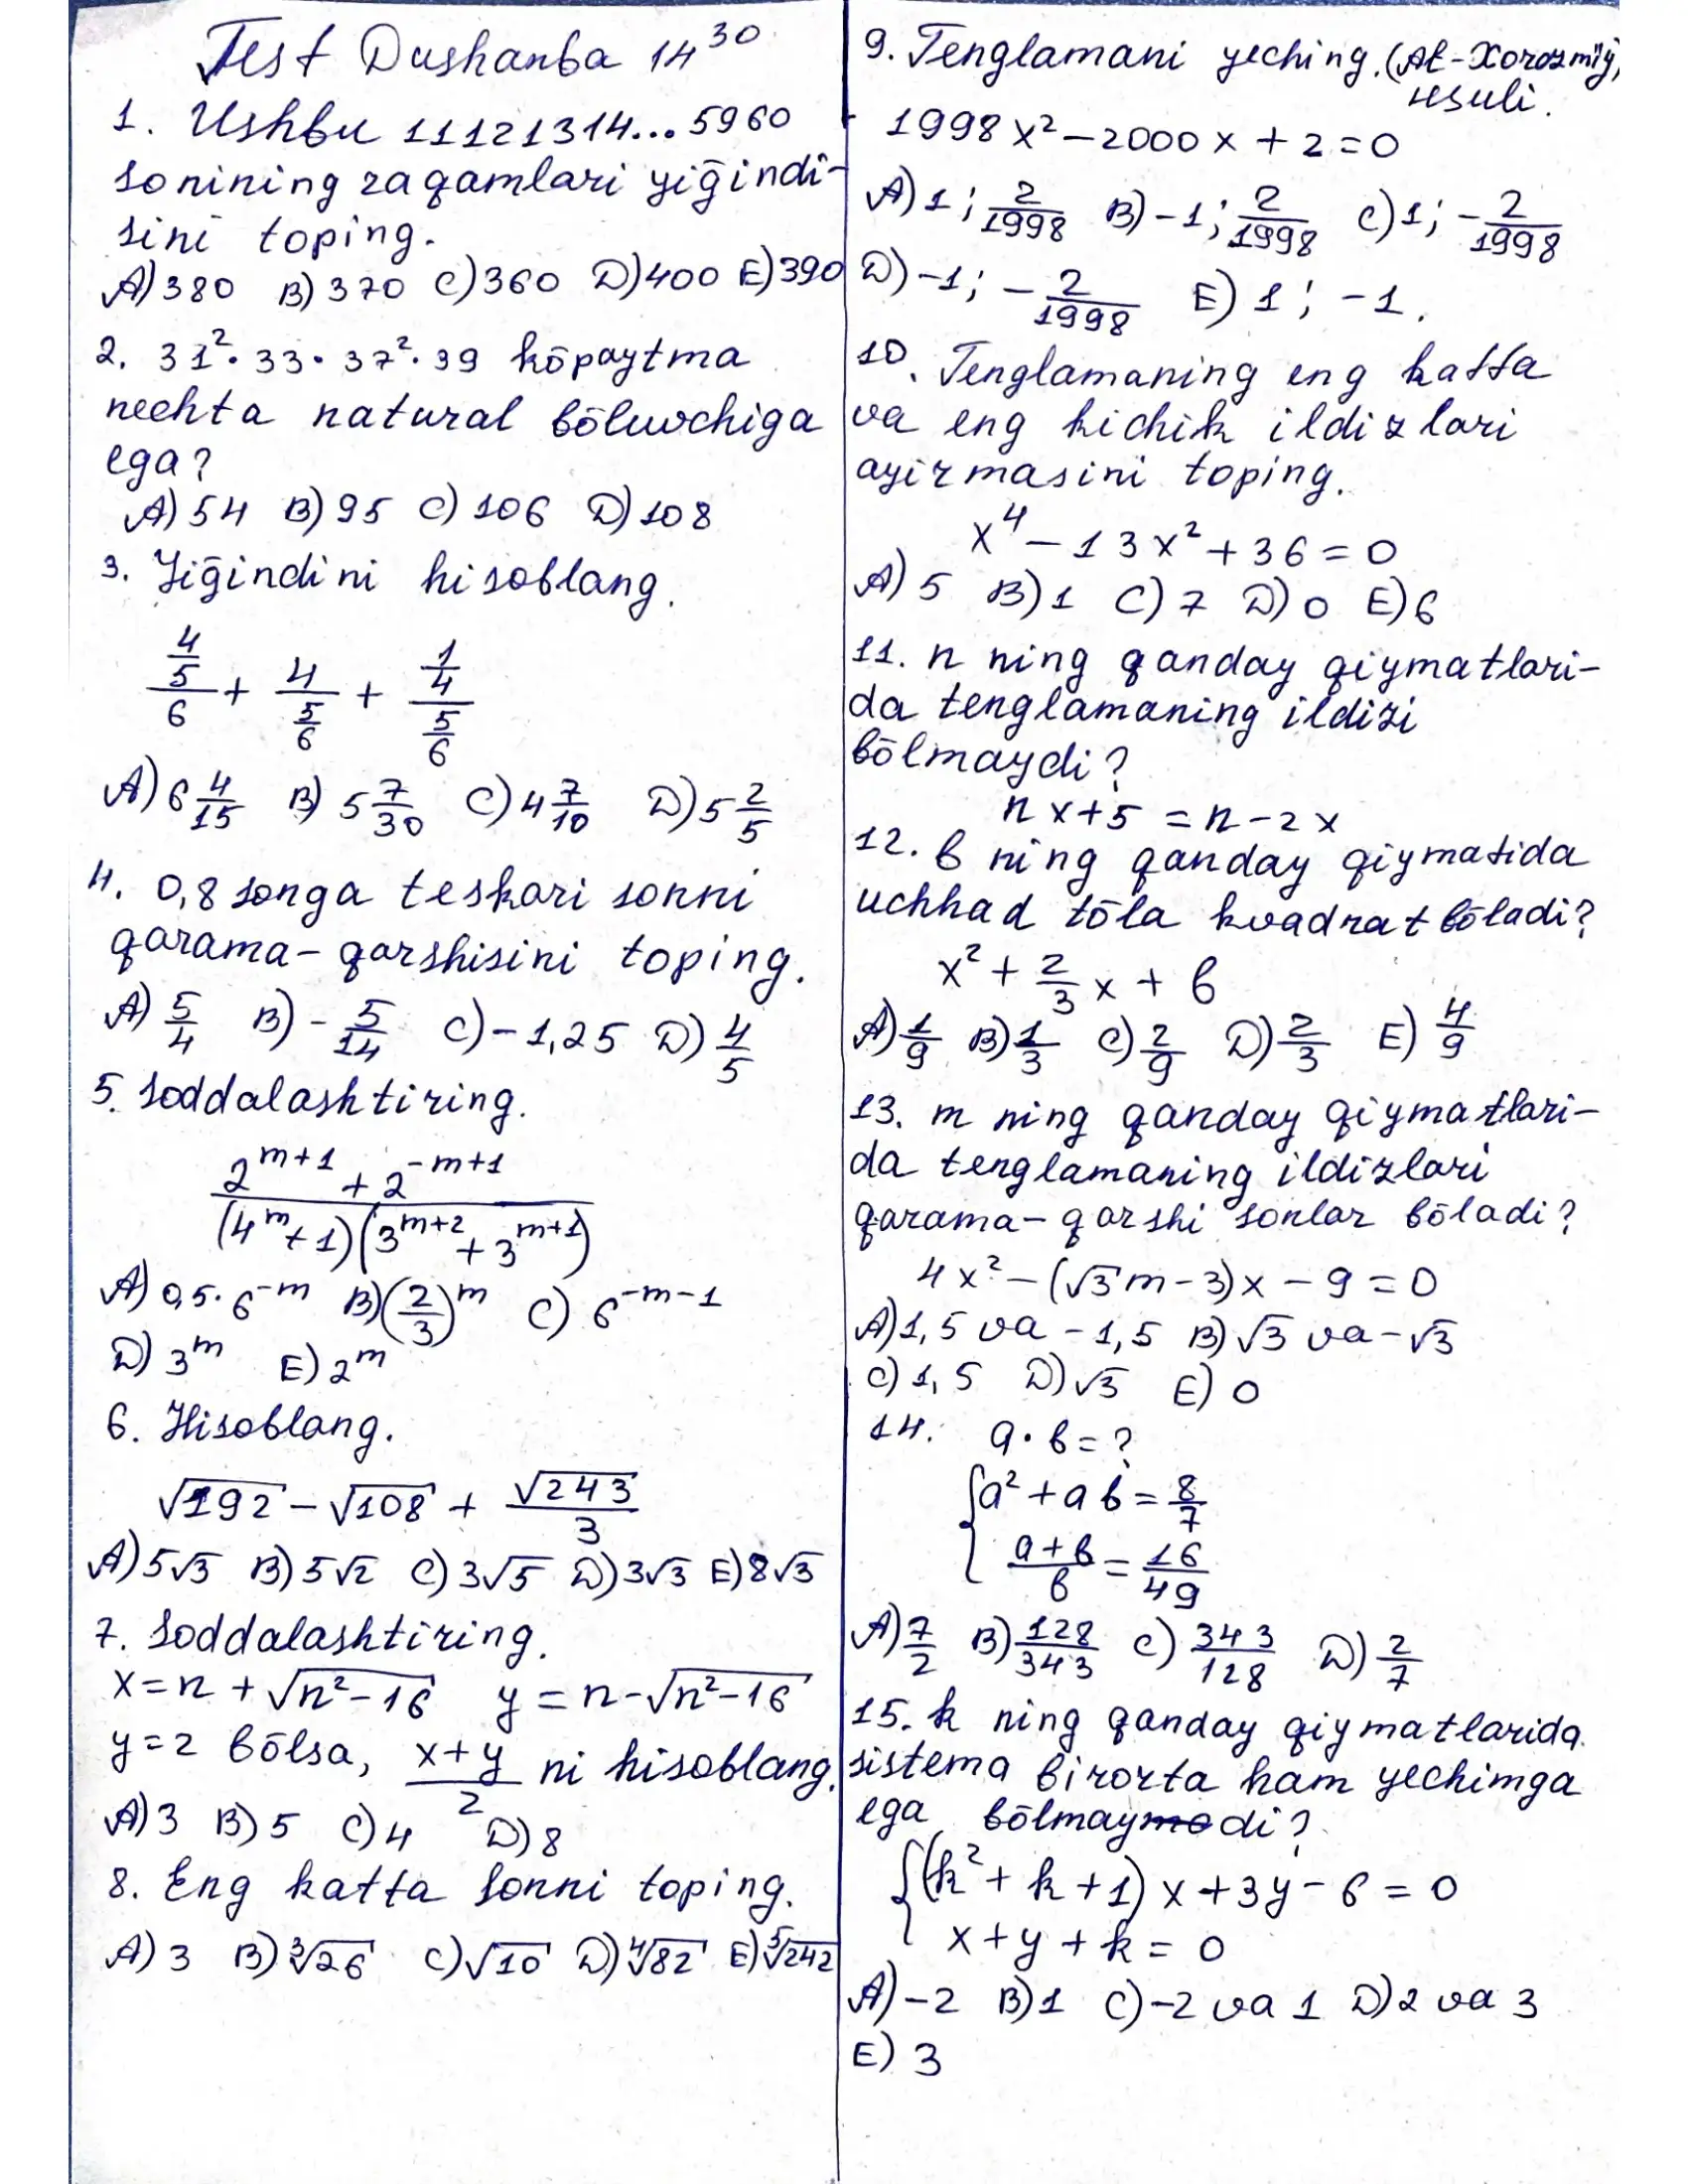 Test Dushanba 14³⁰
1. Ushbu 11121314...5960
sonining raqamlari yiḡindi-
sini toping.
A) 380 B) 370 C) 360 D) 400 E) 390
2. 31²·33·37²·39 kōpaytma
nechta natural bōluvchiga
ega?
A) 54 B) 95 C) 106 D) 108
3. Yiḡindini hisoblang.
(4/5)/6 + 4/(5/6) + (1/4)/(5/6)
A) 6 4/15 B) 5 7/30 C) 4 7/10 D) 5 2/5
4. 0,8 songa teskari sonni
qarama-qarshisini toping.
A) 5/4 B) -5/14 C) -1,25 D) 4/5
5. Soddalashtiring.
(2^(m+1) + 2^(-m+1)) / ((4^m + 1)(3^(m+2) + 3^(m+1)))
A) 0,5·6^(-m) B) (2/3)^m C) 6^(-m-1)
D) 3^m E) 2^m
6. Hisoblang.
√192 - √108 + √243/3
A) 5√3 B) 5√2 C) 3√5 D) 3√3 E) 8√3
7. Soddalashtiring.
x = n + √(n²-16) y = n - √(n²-16)
y = 2 bōlsa, (x+y)/2 ni hisoblang.
A) 3 B) 5 C) 4 D) 8
8. Eng katta sonni toping.
A) 3 B) ∛26 C) √10 D) ∜82 E) ⁵√242
9. Tenglamani yeching. (Al-Xorazmiy,
usuli.
1998x² - 2000x + 2 = 0
A) 1; 2/1998 B) -1; 2/1998 C) 1; -2/1998
D) -1; -2/1998 E) 1; -1.
10. Tenglamaning eng katta
va eng kichik ildizlari
ayirmasini toping.
x⁴ - 13x² + 36 = 0
A) 5 B) 1 C) 7 D) 0 E) 6
11. n ning qanday qiymatlari-
da tenglamaning ildizi
bōlmaydi?
nx + 5 = n - 2x
12. b ning qanday qiymatida
uchhad tōla kvadrat bōladi?
x² + 2/3 x + b
A) 1/9 B) 1/3 C) 2/9 D) 2/3 E) 4/9
13. m ning qanday qiymatlari-
da tenglamaning ildizlari
qarama-qarshi sonlar bōladi?
4x² - (√3m - 3)x - 9 = 0
A) 1,5 va -1,5 B) √3 va -√3
C) 1,5 D) √3 E) 0
14. a·b = ?
{a² + ab = 8/7
(a+b)/b = 16/49
A) 7/2 B) 128/343 C) 343/128 D) 2/7
15. k ning qanday qiymatlarida
sistema birorta ham yechimga
ega bōlmaydi?
{(k² + k + 1)x + 3y - 6 = 0
x + y + k = 0
A) -2 B) 1 C) -2 va 1 D) 2 va 3
E) 3